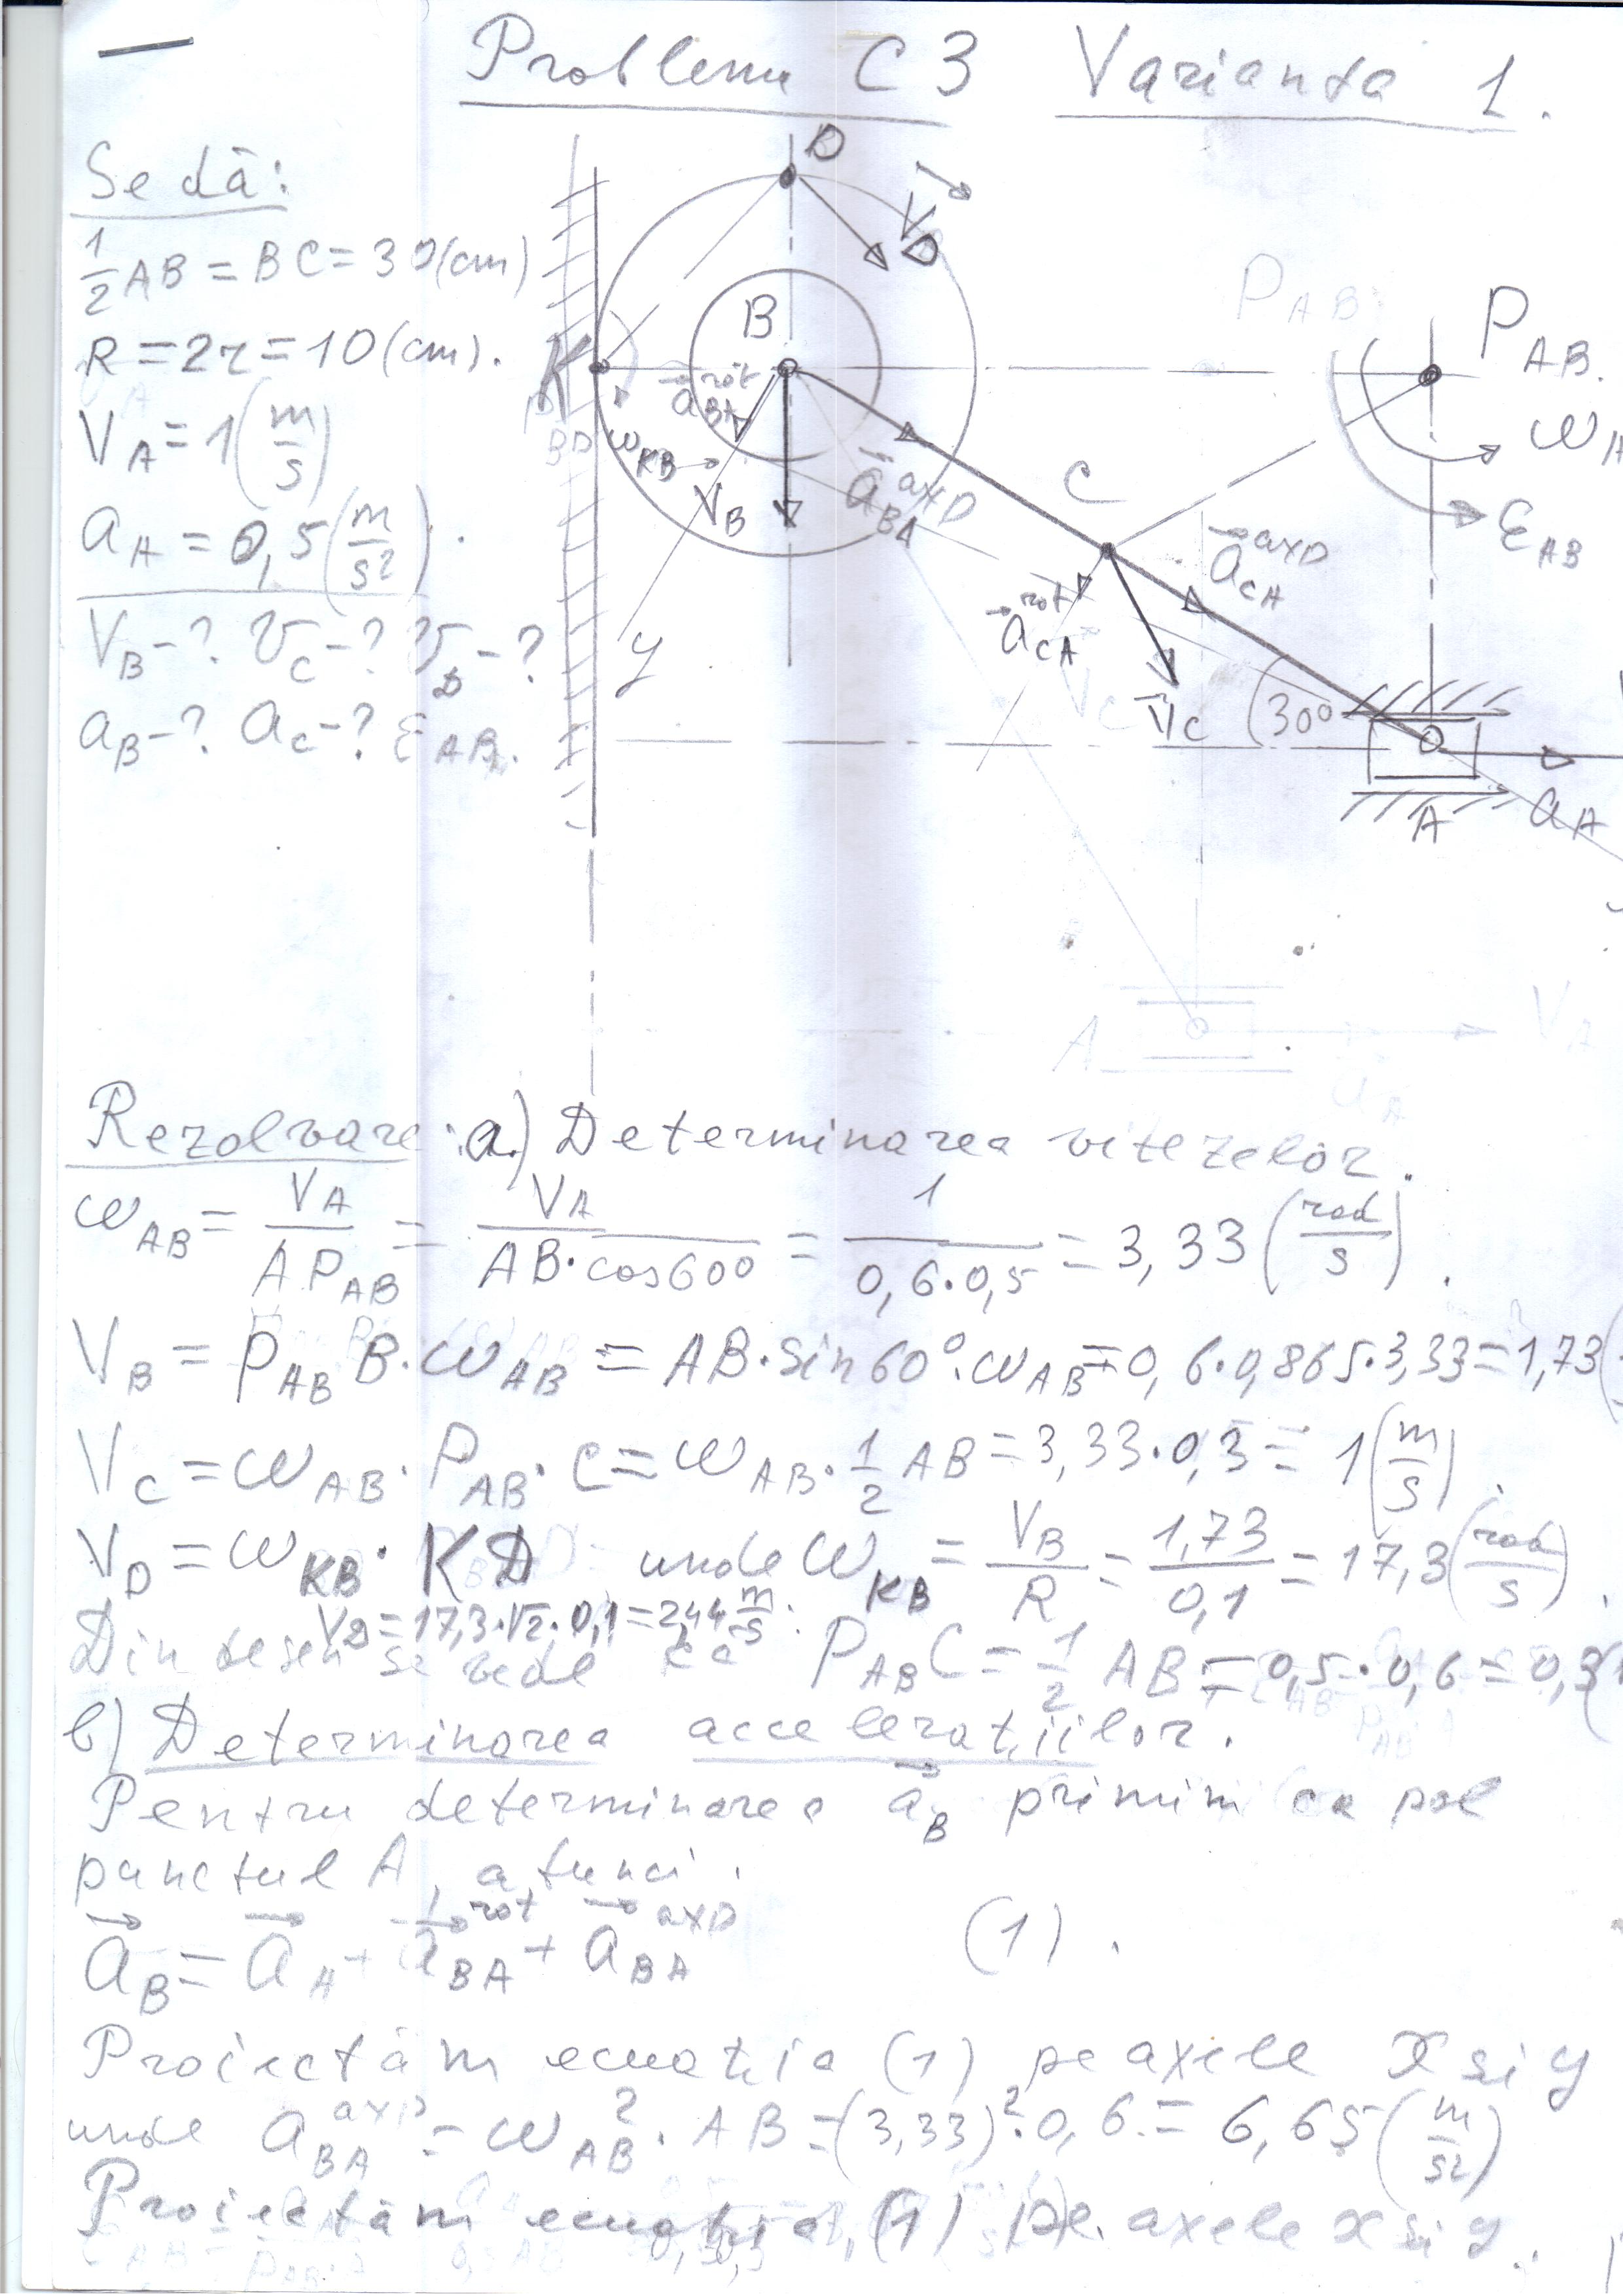 Problema C3 Varianta 1.
Se dă:
1/2 AB = BC = 30(cm)
R = 2r = 10(cm).
V_A = 1(m/s)
a_A = 0,5(m/s²).
V_B-? V_C-? V_D-?
a_B-? a_C-? ε_AB.
D
V_D
B
K
a_BA^rot
ω_KB
V_B
a_BA^axD
y
C
a_CA^axD
a_CA^rot
V_C
30°
P_AB.
ε_AB
A
a_A
Rezolvare: a.) Determinarea vitezelor.
ω_AB = V_A/AP_AB = V_A/AB·cos60° = 1/0,6·0,5 = 3,33(rad/s).
V_B = P_AB B·ω_AB = AB·sin60°·ω_AB = 0,6·0,865·3,33 = 1,73
V_C = ω_AB·P_AB·C = ω_AB·1/2 AB = 3,33·0,3 = 1(m/s).
V_D = ω_KB·KD unde ω_KB = V_B/R = 1,73/0,1 = 17,3(rad/s).
V_D = 17,3·√2·0,1 = 2,44 m/s.
Din desen se vede că P_AB C = 1/2 AB = 0,5·0,6 = 0,3
b) Determinarea accelerațiilor.
Pentru determinarea a_B primim ca pol
punctul A, atunci.
a_B = a_A + a_BA^rot + a_BA^axD (1).
Proiectăm ecuația (1) pe axele x și y
unde a_BA^axD = ω_AB²·AB = (3,33)²·0,6 = 6,65(m/s²)
Proiectăm ecuația (1) pe axele x și y.